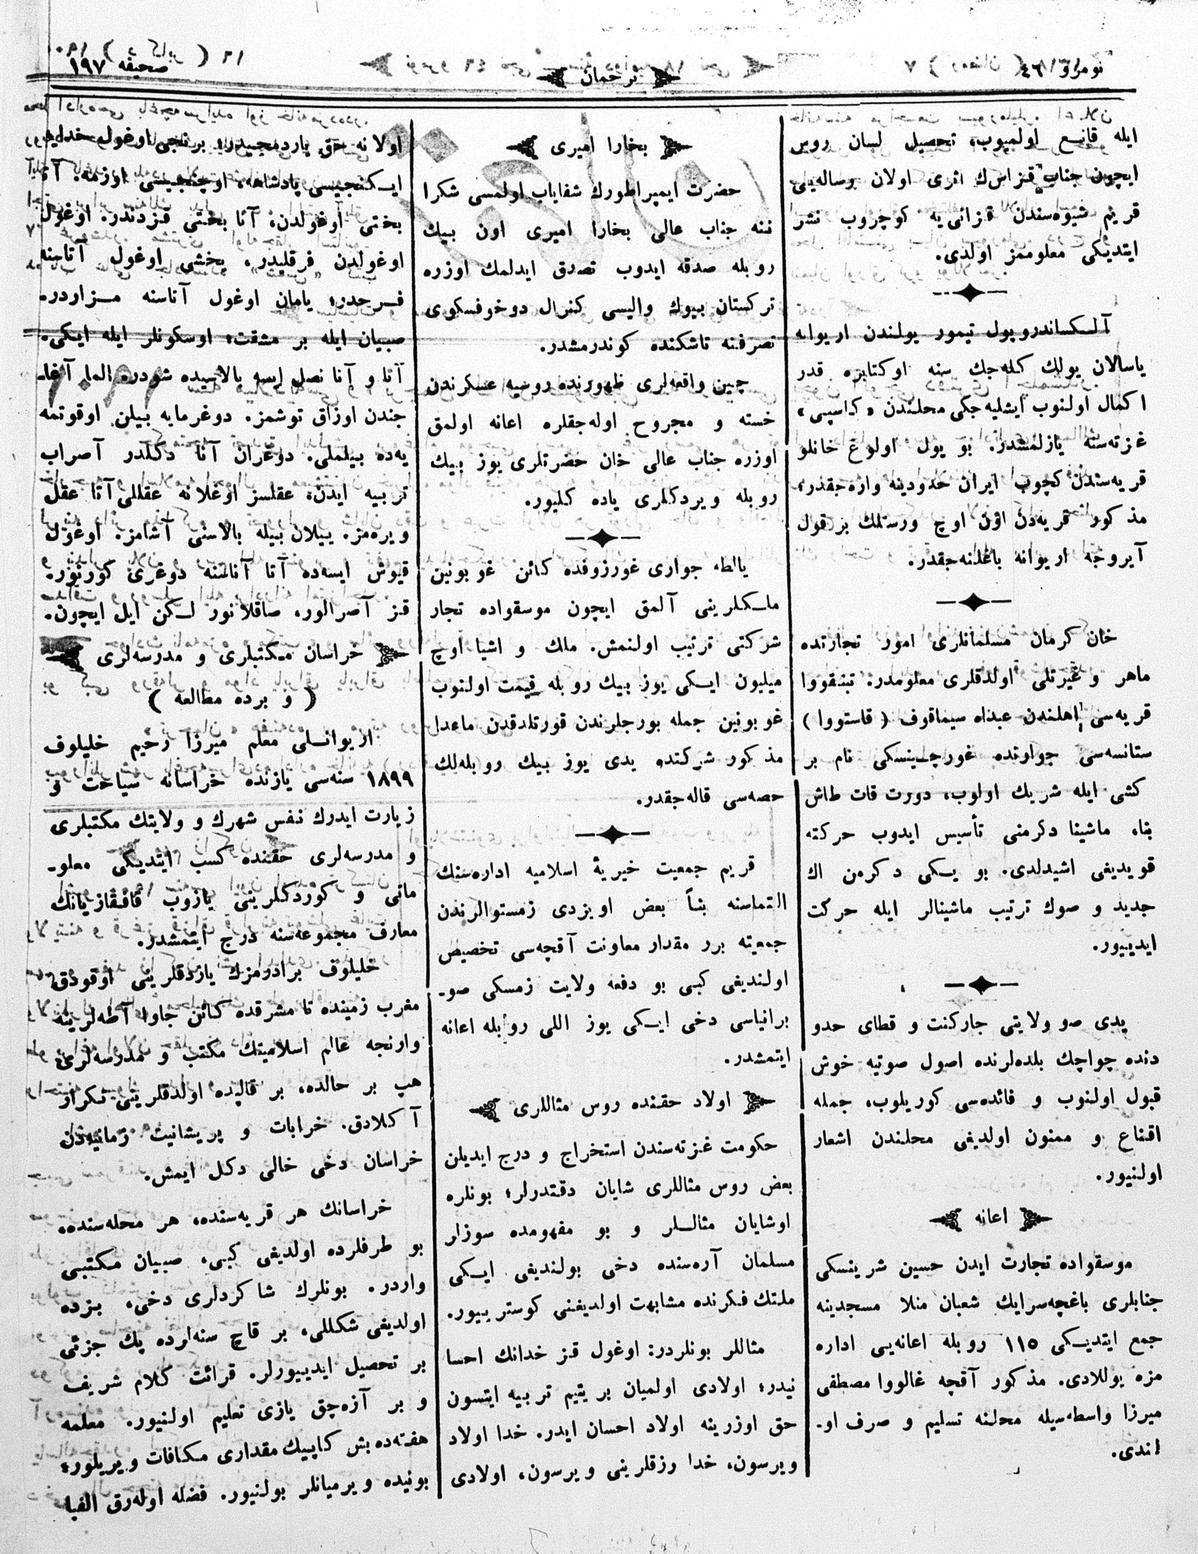 نومرو ٤٦
ترجمان
صحيفه ١٩٧
ايله قانع اولميوب، تحصيل لسان روس
ايچون جناب قنزاس‌ك اثرى اولان رساله‌يى
قريم شيوه‌سندن قزانى‌يه كوچروب نشر
ايتديكى معلوممز اولدى.
آلكساندروپول تيمور يولندن اريوانه
ياسالان يولك كله‌جك سنه اوكتابره قدر
اكمال اولنوب ايشليه‌جكى محلندن «كاسپى»
غزته‌سنه يازلمشدر. بو يول اولوغ خانلو
قريه‌سندن كچوب ايران حدودينه واره‌جقدر؛
مذكور قريه‌دن اون اوچ ورستلك بر قول
آيروجه اريوانه باغلنه‌جقدر.
خان كرمان مسلمانلرى امور تجارتده
ماهر و غيرتلى اولدقلرى معلومدر: تبنقووا
قريه‌سى اهلندن عبدالله سيماقوف (قاستووا)
ستانسه‌سى جوارنده غورچلينسكى نام بر
كشى ايله شريك اولوب، دورت قات طاش
بناء ماشينا دكرمنى تأسيس ايدوب حركته
قويديغى اشيدلدى. بو يكى دكرمن اك
جديد و صوك ترتيب ماشينالر ايله حركت
ايدييور.
يدى صو ولايتى جاركنت و قطاى حدو
دنده چواچك بلده‌لرنده اصول صوتيه خوش
قبول اولنوب و فائده‌سى كوريلوب، جمله
اقناع و ممنون اولديغى محلندن اشعار
اولنيور.
اعانه
موسقواده تجارت ايدن حسين شرينسكى
جنابلرى باغچه‌سرايك شعبان منلا مسجدينه
جمع ايتديكى ١١٥ روبله اعانه‌يى اداره
مزه يوللادى. مذكور آقچه غالووا مصطفى
ميرزا واسطه‌سيله محلنه تسليم و صرف او-
لندى.
بخارا اميرى
حضرت ايمپراطورك شفاياب اولمسى شكرا
ننه جناب عالى بخارا اميرى اون بيك
روبله صدقه ايدوب تصدق ايدلمك اوزره
تركستان بيوك واليسى كنرال دوخوفسكوى
تصرفنه تاشكنده كوندرمشدر.
چين واقعه‌لرى ظهورنده روسيه عسكرندن
خسته و مجروح اوله‌جقلره اعانه اولمق
اوزره جناب عالى خان حضرتلرى يوز بيك
روبله ويردكلرى ياده كليور.
يالطه جوارى غورزوفده كائن غوبونين
ملكلرينى آلمق ايچون موسقواده تجار
شركتى ترتيب اولنمش. ملك و اشيا اوچ
ميليون ايكى يوز بيك روبله قيمت اولنوب
غوبونين جمله بورجلرندن قورتلدقدن ماعدا
مذكور شركتده يدى يوز بيك روبله‌لك
حصه‌سى قاله‌جقدر.
قريم جمعيت خيرية اسلاميه اداره‌سنك
التماسنه بناً بعض اويزدى زمستوالرندن
جمعيته برر مقدار معاونت آقچه‌سى تخصيص
اولنديغى كبى بو دفعه ولايت زمسكى صو-
برانياسى دخى ايكى يوز اللى روبله اعانه
ايتمشدر.
اولاد حقنده روس مثاللرى
حكومت غزته‌سندن استخراج و درج ايديلن
بعض روس مثاللرى شايان دقتدرلر؛ بونلره
اوشايان مثاللر و بو مفهومده سوزلر
مسلمان آره‌سنده دخى بولنديغى ايكى
ملتك فكرنده مشابهت اولديغنى كوستريبيور.
مثاللر بونلردر: اوغول قز خدانك احسا
نيدر؛ اولادى اولميان بر يتيم تربيه ايتسون
حق اوزرينه اولاد احسان ايدر. خدا اولاد
ويرسون، خدا رزقلرينى ويرسون، اولادى
اولانه حق ياردمجيدر؛ برنجى اوغول خدايه
ايكنجيسى پادشاهه، اوچنجيسى اوزمه؛ آتا
بختى اوغلدن، آنا بختى قزدندر. اوغول
اوغولدن فرقليدر. يخشى اوغول آتاسنه
فرحدر؛ يامان اوغول آتاسنه مزاردر.
صبيان ايله بر مشقت، اوسكونلر ايله ايكى.
آتا و آنا نصل ايسه بالاسيده شودر؛ الما آغا-
جندن اوزاق توشمز. دوغرمايه بيلن اوقوتمه
يه‌ده بيلملى. دوغران آتا دكلدر آصراب
تربيه ايدن، عقلسز اوغلانه عقللى آتا عقل
ويره‌مز. ييلان بيله بالاسنى آشامز. اوغول
قيوش ايسه‌ده آتا آناشنه دوغرى كورنور.
قز آصرالور، صاقلانور لكن ايل ايچون.
خراسان مكتبلرى و مدرسه‌لرى
(و برده مطالعه)
اريوانلى معلم ميرزا رحيم خليلوف
١٨٩٩ سنه‌سى يازنده خراسانه سياحت و
زيارت ايدرك نفس شهرك و ولايتك مكتبلرى
و مدرسه‌لرى حقنده كسب ايتديكى معلو-
ماتى و كوردكلرينى يازوب قافقازيانك
معارف مجموعه‌سنه درج ايتمشدر.
خليلوف برادرمزك يازدقلرينى اوقودق،
مغرب زمينده تا مشرقده كائن جاوا آطه‌لرينه
وارنجه عالم اسلاميتك مكتب و مدرسه‌لرى
هپ بر حالده، بر قالپده اولدقلرينى تكرار
آكلادق. خرابات و پريشانيت زمانيدن
خراسان دخى خالى دكل ايمش.
خراسانك هر قريه‌سنده، هر محله‌سنده،
بو طرفلرده اولديغى كبى، صبيان مكتبى
واردر. بونلرك شاكردلرى دخى، بزده
اولديغى شكللى، بر قاچ سنه‌لرده پك جزئى
بر تحصيل ايدييورلر. قرائت كلام شريف
و بر آزه‌جق يازى تعليم اولنيور. معلمه
هفته‌ده بش كاپيك مقدارى مكافات ويريلور؛
بونيده ويرميانلر بولنيور. فضله اوله‌رق الفبا